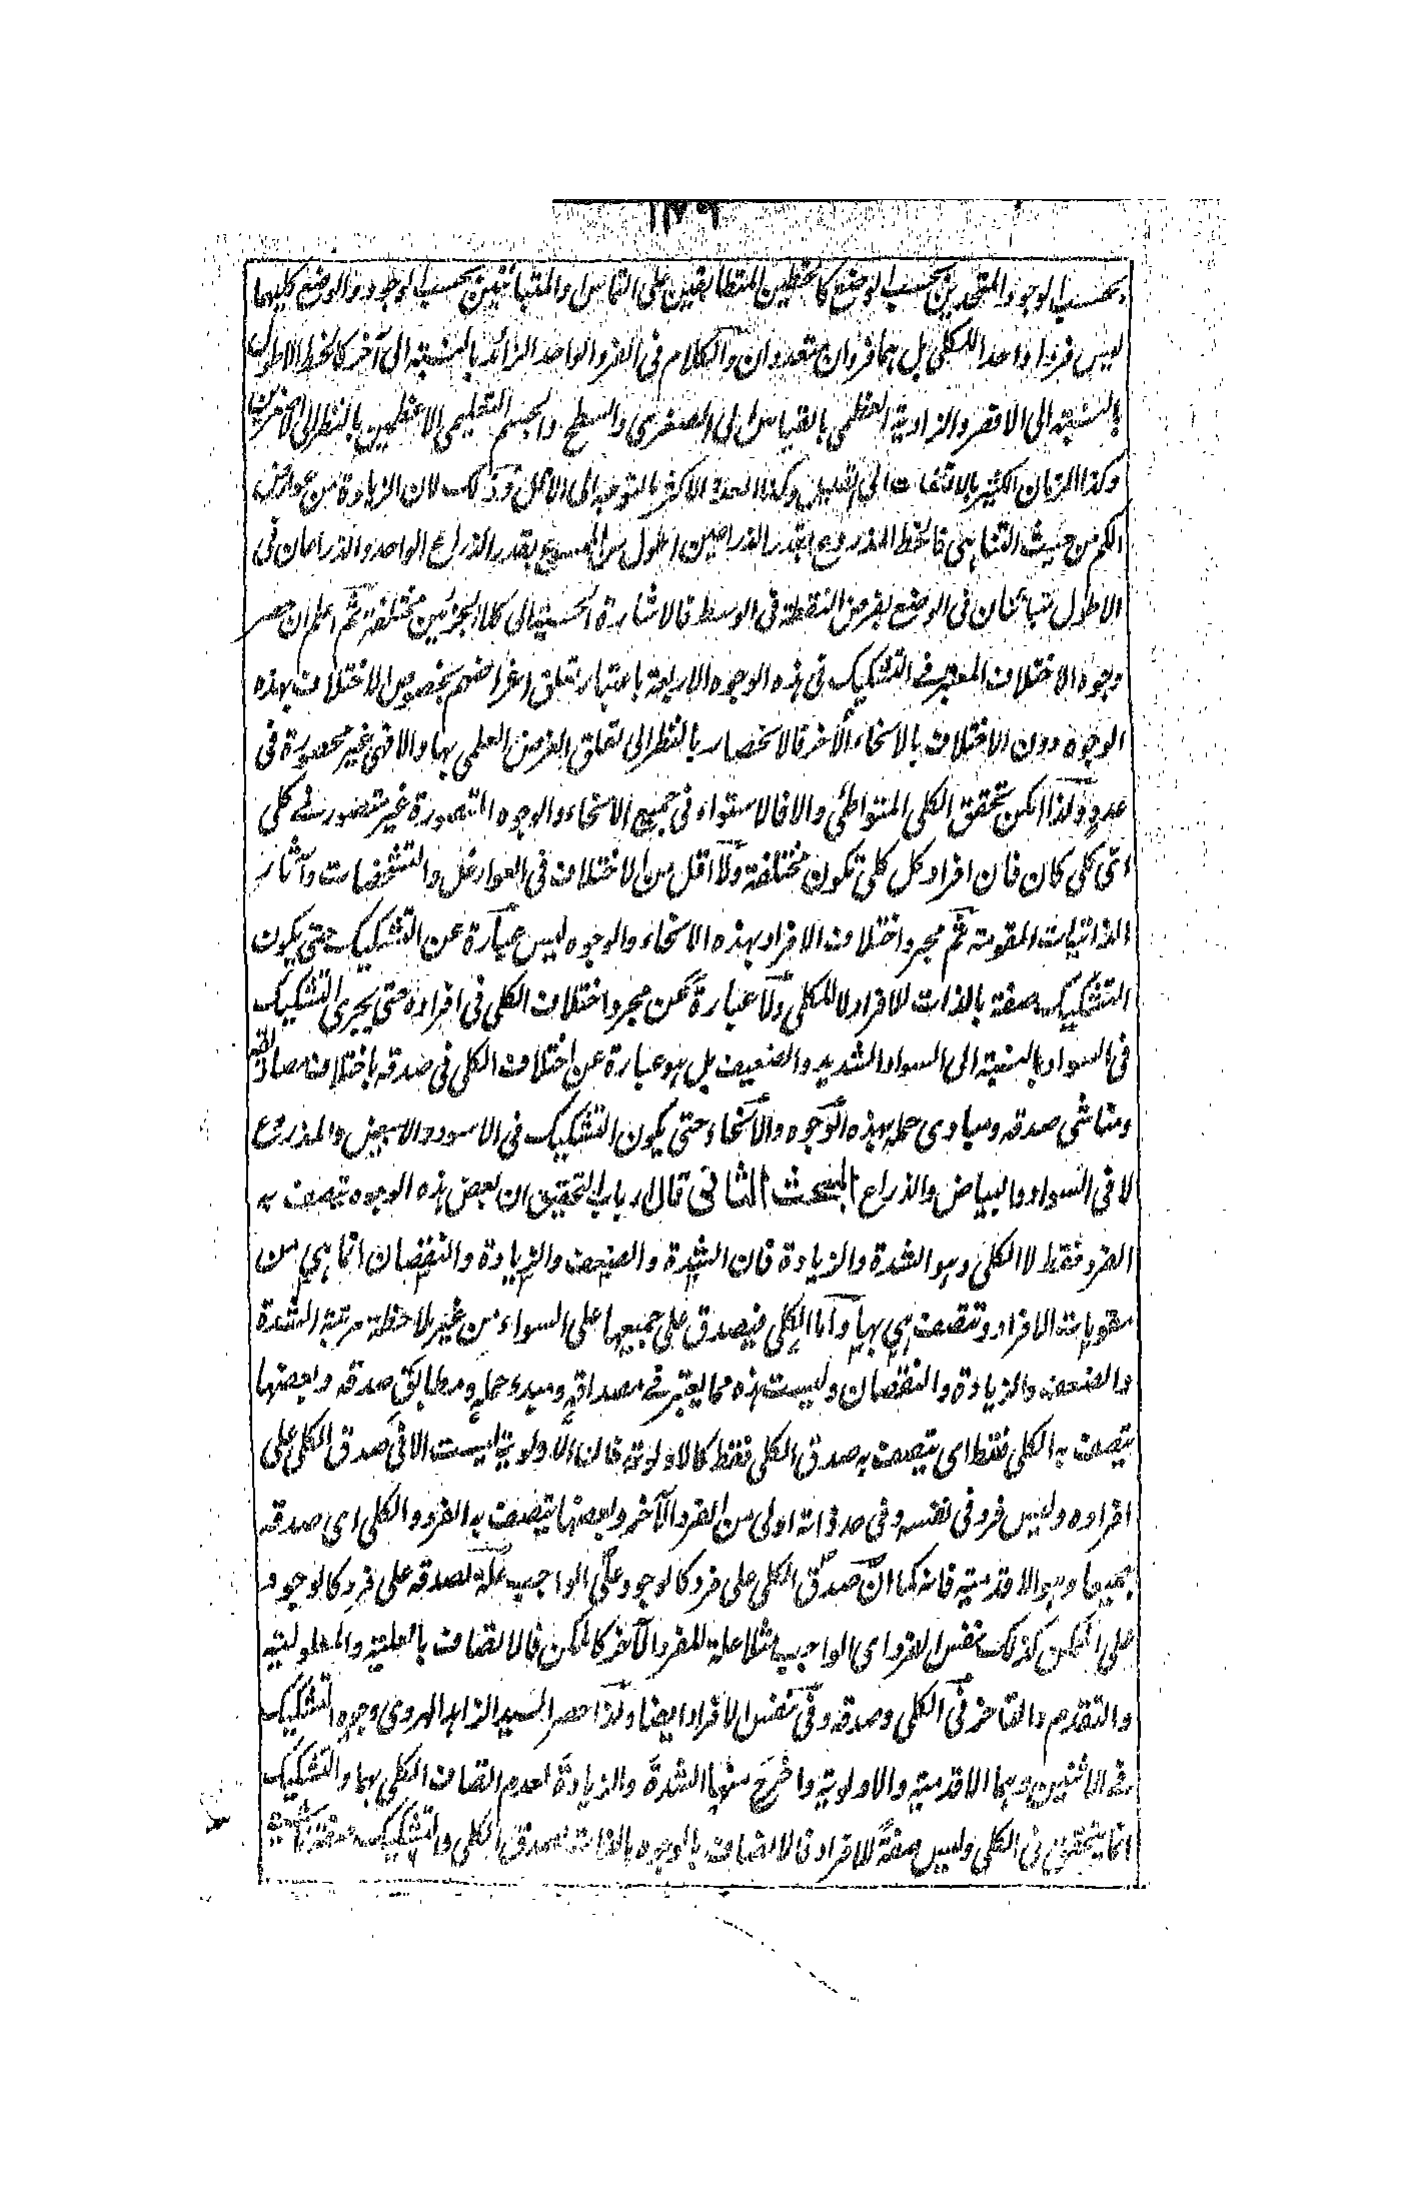 بحسب الوجود المتحدين بحسب الوضع كالخطين المتطابقين على التماس والمتبائنين بحسب الوجود والوضع كليهما
ليس فردا واحدا للكلي بل هما فردان متعددان والكلام في الفرد الواحد الزائد بالنسبة الى آخر كالخط الاطول
بالنسبة الى الاقصر والزاوية العظمى بالقياس الى الصغرى والسطح والجسم التعليمي الاعظمين بالنظر الى الاصغرين
وكذا الزمان الكثير بالالتفات الى القليل وكذا العدد الاكثر بالتوجه الى الاقل وذلك لان الزيادة من عوارض
الكم من حيث التناهي فالخط المذروع بقدر الذراعين اطول من المذروع بقدر الذراع الواحد والذراعان في
الاطول متبائنان في الوضع بفرض النقطة في الوسط فالاشارة الحسية الى كلا الجزئين مختلفة ثم اعلم ان حصر
وجوه الاختلاف المعتبر في التشكيك في هذه الوجوه الاربعة باعتبار تعلق اغراضهم بخصوص الاختلاف بهذه
الوجوه دون الاختلاف بالانحاء الأخر فالانحصار بالنظر الى تعلق الغرض العلمي بها والا فهي غير محصورة في
عدد ولذا امكن تحقق الكلي المتواطئ والا فالاستواء في جميع الانحاء والوجوه المتصورة غير متصور في كلي
اي كلي كان فان افراد كل كلي تكون مختلفة ولا اقل من الاختلاف في العوارض والتشخصات وآثار
الذاتيات المقومة ثم مجرد اختلاف الافراد بهذه الانحاء والوجوه ليس عبارة عن التشكيك حتى يكون
التشكيك صفة بالذات للافراد لا للكلي ولا عبارة عن مجرد اختلاف الكلي في افراده حتى يجري التشكيك
في السواد بالنسبة الى السواد الشديد والضعيف بل هو عبارة عن اختلاف الكلي في صدقه باختلاف مصاديقه
ومناشي صدقه ومبادي حمله بهذه الوجوه والانحاء حتى يكون التشكيك في الاسود والابيض والمذروع
لا في السواد والبياض والذراع المبحث الثاني قال ارباب التحقيق ان بعض هذه الوجوه تتصف به
الفرد فقط لا الكلي وهو الشدة والزيادة فان الشدة والضعف والزيادة والنقصان انما هي من
مقومات الافراد وتتصف هي بها واما الكلي فيصدق على جميعها على السواء من غير ملاحظة مرتبة الشدة
والضعف والزيادة والنقصان وليست هذه مما يعتبر في مصداقه ومبدء حمله ومطابق صدقه وبعضها
يتصف به الكلي فقط اي يتصف به صدق الكلي فقط كالاولوية فان الاولوية ليست الا في صدق الكلي على
افراده وليس فرد في نفسه وفي حد ذاته اولى من الفرد الآخر وبعضها يتصف به الفرد والكلي اي صدقه
جميعا وهو الاقدمية فانه كما ان صدق الكلي على فرد كالوجود على الواجب علة لصدقه على فرد كالوجود
على الممكن كذلك نفس الفرد اي الواجب مثلا علة للفرد الآخر كالممكن فالاتصاف بالعلية والمعلولية
والتقدم والتاخر في الكلي وصدقه وفي نفس الافراد ايضا ولذا حصر السيد الزاهد الهروي وجوه التشكيك
في الاثنين وهما الاقدمية والاولوية واخرج منها الشدة والزيادة لعدم اتصاف الكلي بهما والتشكيك
انما يتحقق في الكلي وليس صفة للافراد فالاتصاف بالوجوه بالذات لصدق الكلي والتشكيك صفة